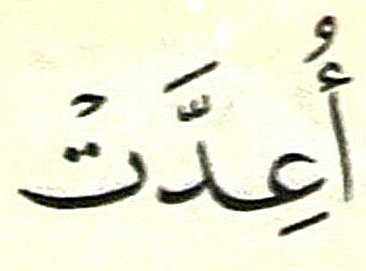 أُعِدَّتْ